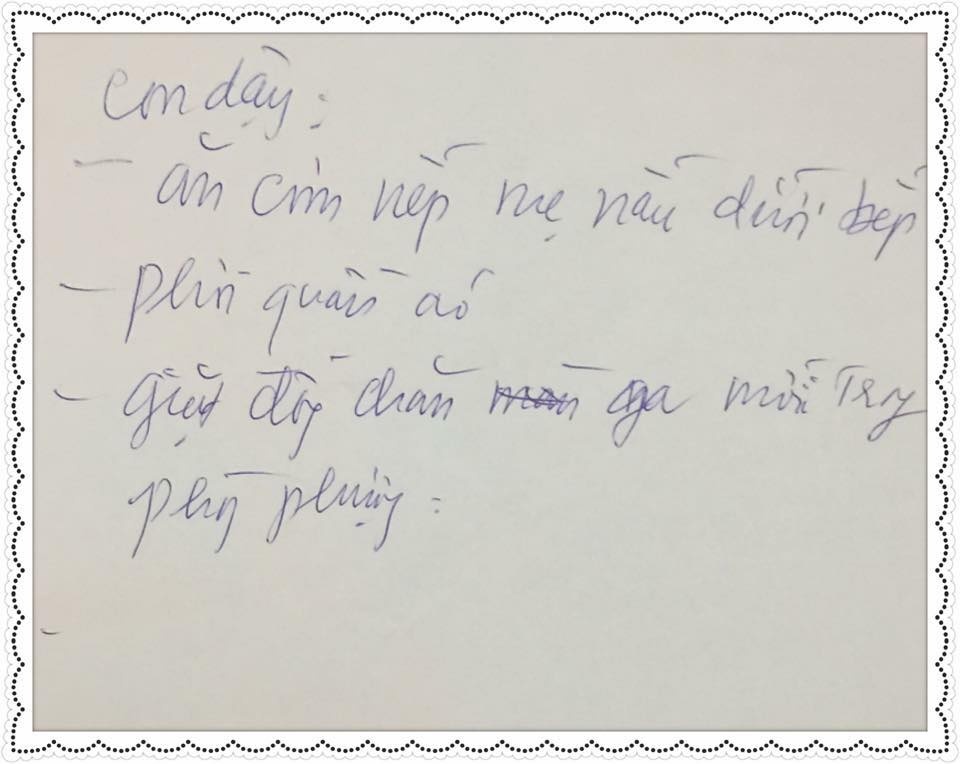 Con dậy:
- ăn cơm nếp mẹ nấu dưới bếp
- phơi quần áo
- giặt đống chăn ga mới Trong
phòng Phụng:
-